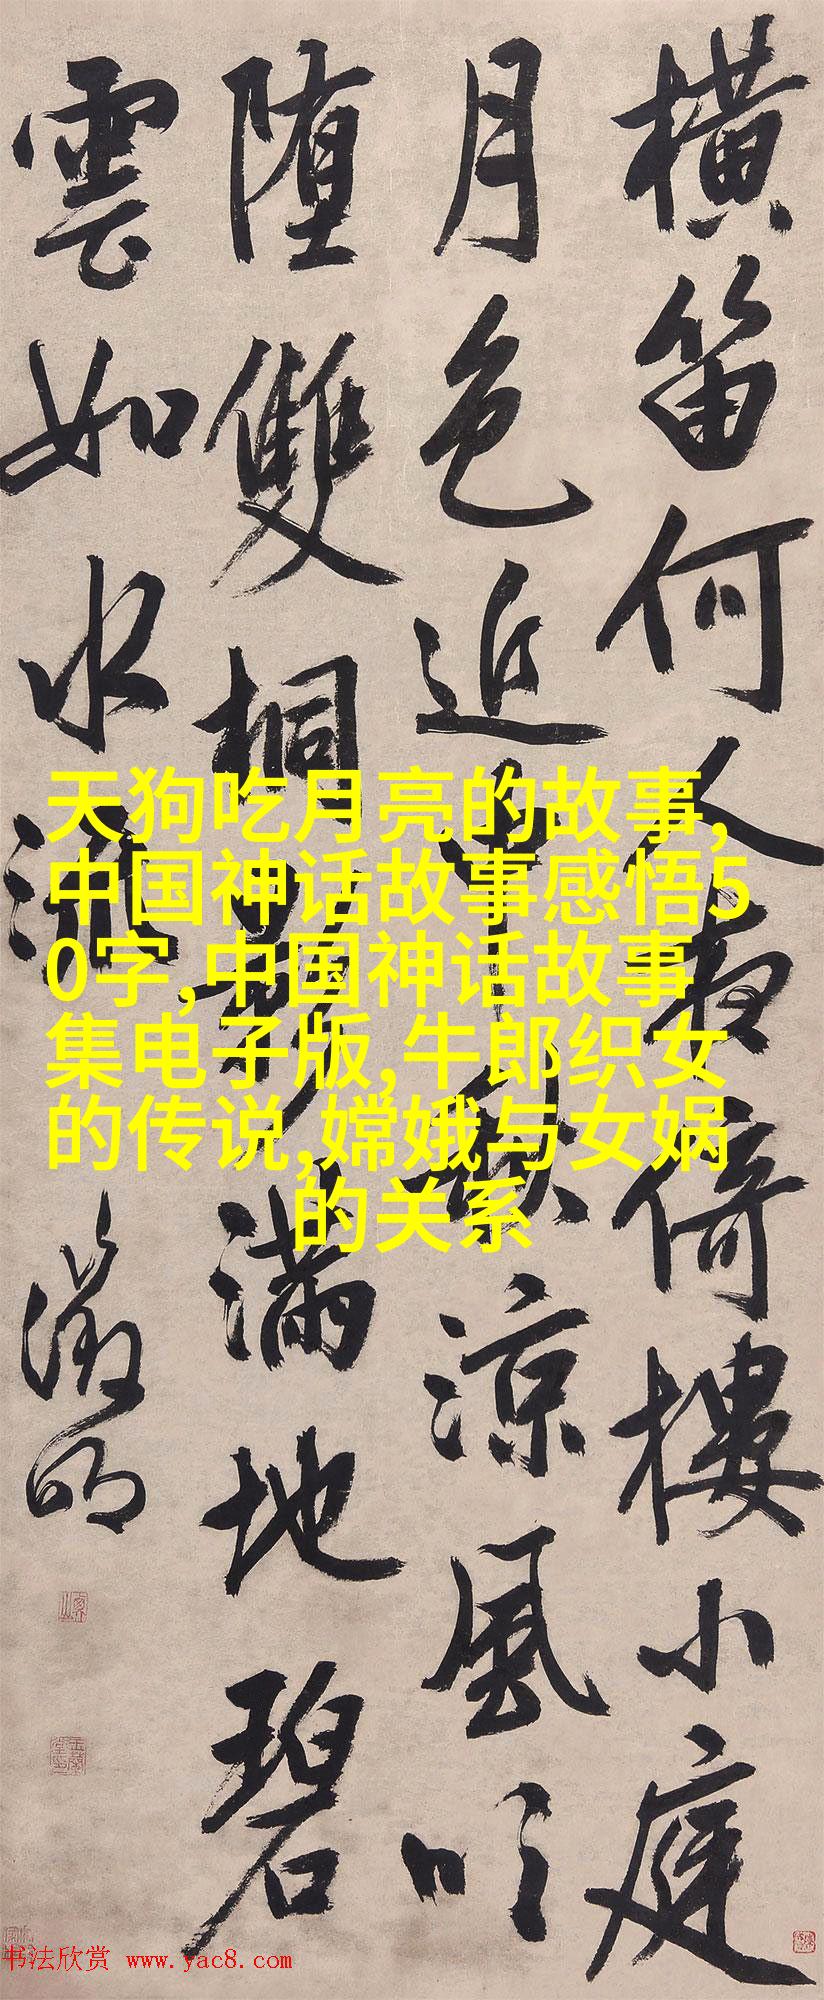 橫笛何人夜倚樓小庭
月色近中秋涼風吹
墮雙桐影滿地碧
雲如水流
徵明
天狗吃月亮的故事,
中国神话故事感悟5
0字,中国神话故事
集电子版,牛郎织女
的传说,嫦娥与女娲
的关系
书法欣赏 www.yac8.com